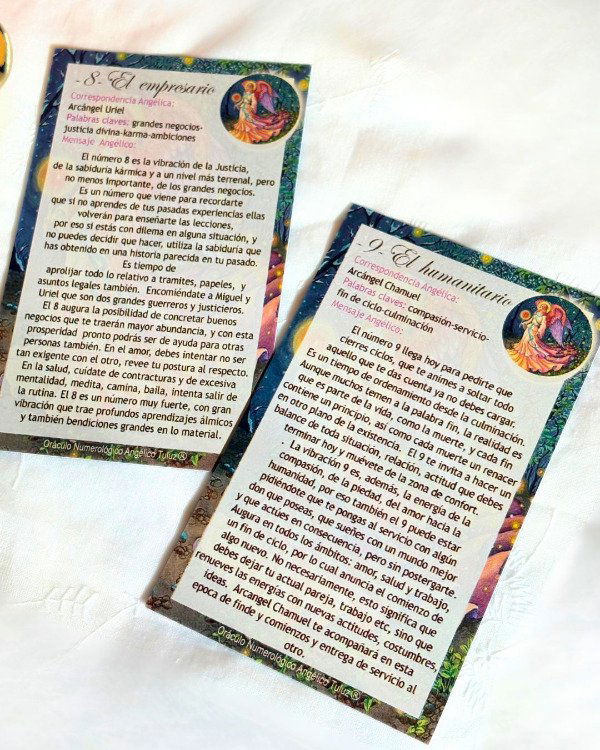 -8- El empresario
Correspondencia Angélica:
Arcángel Uriel
Palabras claves: grandes negocios-
justicia divina-karma-ambiciones
Mensaje Angélico:
El número 8 es la vibración de la Justicia,
de la sabiduría kármica y a un nivel más terrenal, pero
no menos importante, de los grandes negocios.
Es un número que viene para recordarte
que si no aprendes de tus pasadas experiencias ellas
volverán para enseñarte las lecciones,
por eso si estás con dilema en alguna situación, y
no puedes decidir que hacer, utiliza la sabiduría que
has obtenido en una historia parecida en tu pasado.
Es tiempo de
aprolijar todo lo relativo a tramites, papeles, y
asuntos legales también. Encomiéndate a Miguel y
Uriel que son dos grandes guerreros y justicieros.
El 8 augura la posibilidad de concretar buenos
negocios que te traerán mayor abundancia, y con esta
prosperidad pronto podrás ser de ayuda para otras
personas también. En el amor, debes intentar no ser
tan exigente con el otro, revee tu postura al respecto.
En la salud, cuídate de contracturas y de excesiva
mentalidad, medita, camina, baila, intenta salir de
la rutina. El 8 es un número muy fuerte, con gran
vibración que trae profundos aprendizajes álmicos
y también bendiciones grandes en lo material.
Oráculo Numerológico Angélico Tuluz®
-9- El humanitario
Correspondencia Angélica:
Arcángel Chamuel
Palabras claves: compasión-servicio-
fin de ciclo-culminación
Mensaje Angélico:
El número 9 llega hoy para pedirte que
cierres ciclos, que te animes a soltar todo
aquello que te das cuenta ya no debes cargar.
Es un tiempo de ordenamiento desde la culminación.
Aunque muchos temen a la palabra fin, la realidad es
que es parte de la vida, como la muerte, y cada fin
contiene un principio, así como cada muerte un renacer
en otro plano de la existencia. El 9 te invita a hacer un
balance de toda situación, relación, actitud que debes
terminar hoy y muévete de la zona de confort.
La vibración 9 es, además, la energía de la
compasión, de la piedad, del amor hacia la
humanidad, por eso también el 9 puede estar
pidiéndote que te pongas al servicio con algún
don que poseas, que sueñes con un mundo mejor
y que actúes en consecuencia, pero sin postergarte.
Augura en todos los ámbitos: amor, salud y trabajo,
un fin de ciclo, por lo cual anuncia el comienzo de
algo nuevo. No necesariamente, esto significa que
debes dejar tu actual pareja, trabajo etc, sino que
renueves las energías con nuevas actitudes, costumbres,
ideas. Arcangel Chamuel te acompañará en esta
epoca de finde y comienzos y entrega de servicio al
otro.
Oráculo Numerológico Angélico Tuluz®